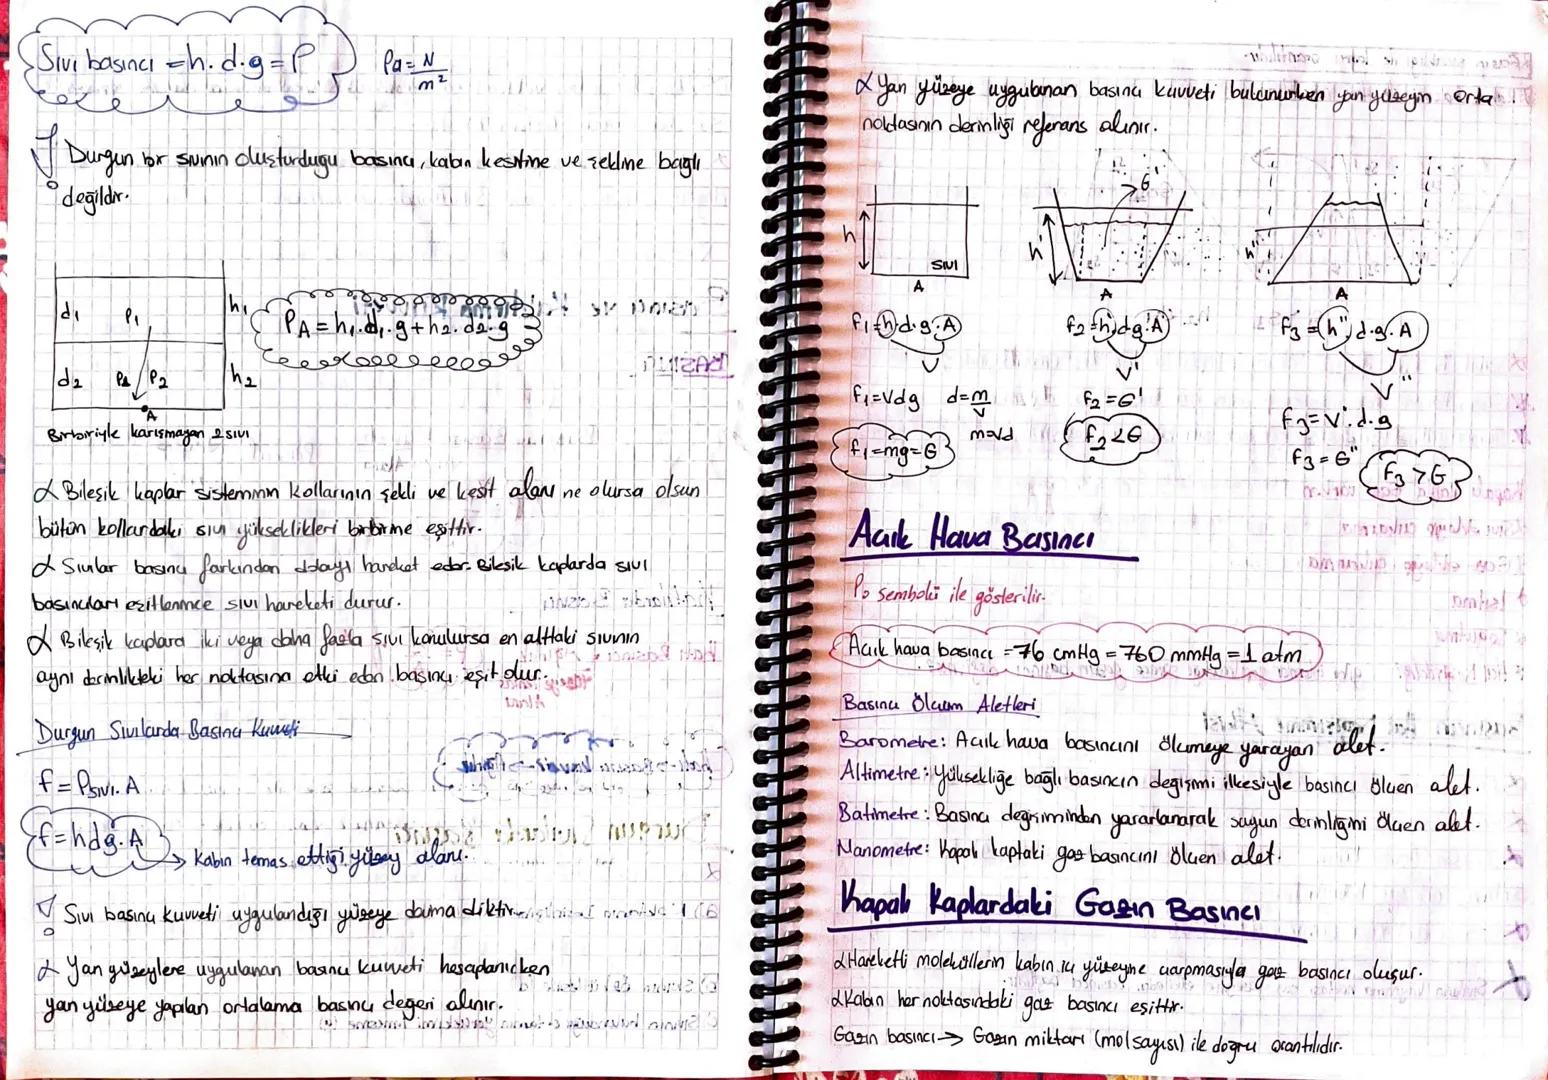 Sıvı basıncı = h.d.g = P
Pa = N/m²
Durgun bir sıvının oluşturduğu basıncı, kabın kesitine ve şekline bağlı
değildir.
d₁ P₁ h₁
P_A = h₁.d₁.g + h₂.d₂.g
d₂ P₂ P₂ h₂
A
Birbiriyle karışmayan 2 sıvı
α Bileşik kaplar sisteminin kollarının şekli ve kesit alanı ne olursa olsun
bütün kollardaki sıvı yükseklikleri birbirine eşittir.
α Sıvılar basıncı farkından dolayı hareket eder. Bileşik kaplarda sıvı
basınçları eşitlenince sıvı hareketi durur.
α Bileşik kaplara iki veya daha fazla sıvı konulursa en alttaki sıvının
aynı derinlikteki her noktasına etki eden basıncı eşit olur.
Durgun Sıvılarda Basınç Kuvveti
f = Psıvı.A
f = hdg.A
Kabın temas ettiği yüzey alanı.
Sıvı basınç kuvveti uygulandığı yüzeye daima diktir.
α Yan yüzeylere uygulanan basınç kuvveti hesaplanırken
yan yüzeye yapılan ortalama basınç değeri alınır.
α Yan yüzeye uygulanan basınç kuvveti bulunurken yan yüzeyin orta
noktasının derinliği referans alınır.
h sıvı A
h' G' A
h'' A
f₁ = h.d.g.A
V
f₁ = Vdg d = m/V
m=Vd
f₁ = mg = G
f₂ = h'.d.g.A
V'
f₂ = G'
f₂ < G
f₃ = h''.d.g.A
V''
f₃ = V''.d.g
f₃ = G''
f₃ > G
Açık Hava Basıncı
P₀ sembolü ile gösterilir.
Açık hava basıncı = 76 cmHg = 760 mmHg = 1 atm
Basınç Ölçüm Aletleri
Barometre: Açık hava basıncını ölçmeye yarayan alet.
Altimetre: Yüksekliğe bağlı basıncın değişimi ilkesiyle basıncı ölçen alet.
Batimetre: Basınç değişiminden yararlanarak suyun derinliğini ölçen alet.
Manometre: Kapalı kaptaki gaz basıncını ölçen alet.
Kapalı Kaplardaki Gazın Basıncı
α Hareketli moleküllerin kabın iç yüzeyine çarpmasıyla gaz basıncı oluşur.
α Kabın her noktasındaki gaz basıncı eşittir.
Gazın basıncı → Gazın miktarı (mol sayısı) ile doğru orantılıdır.